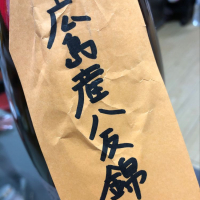 広島産八反錦